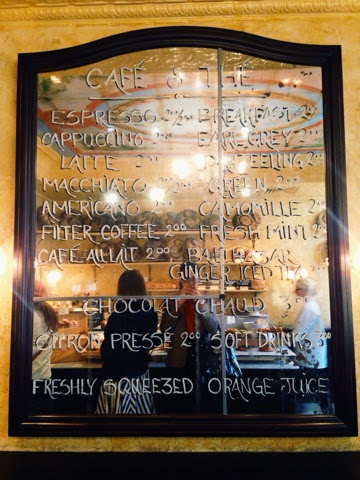 CAFÉ & THÉ
ESPRESSO BREAKFAST 2⁰⁰
CAPPUCCINO 2⁰⁰ EARL GREY 2⁰⁰
LATTE 2⁰⁰ DARJEELING 2⁰⁰
MACCHIATO GREEN 2⁰⁰
AMERICANO 2⁰⁰ CAMOMILLE 2⁰⁰
FILTER COFFEE 2⁰⁰ FRESH MINT 2⁰⁰
CAFÉ AU LAIT 2⁰⁰
GINGER ICED TEA 2⁰⁰
CHOCOLAT CHAUD 3⁰⁰
CITRON PRESSÉ 2⁰⁰ SOFT DRINKS 3⁰⁰
FRESHLY SQUEEZED ORANGE JUICE